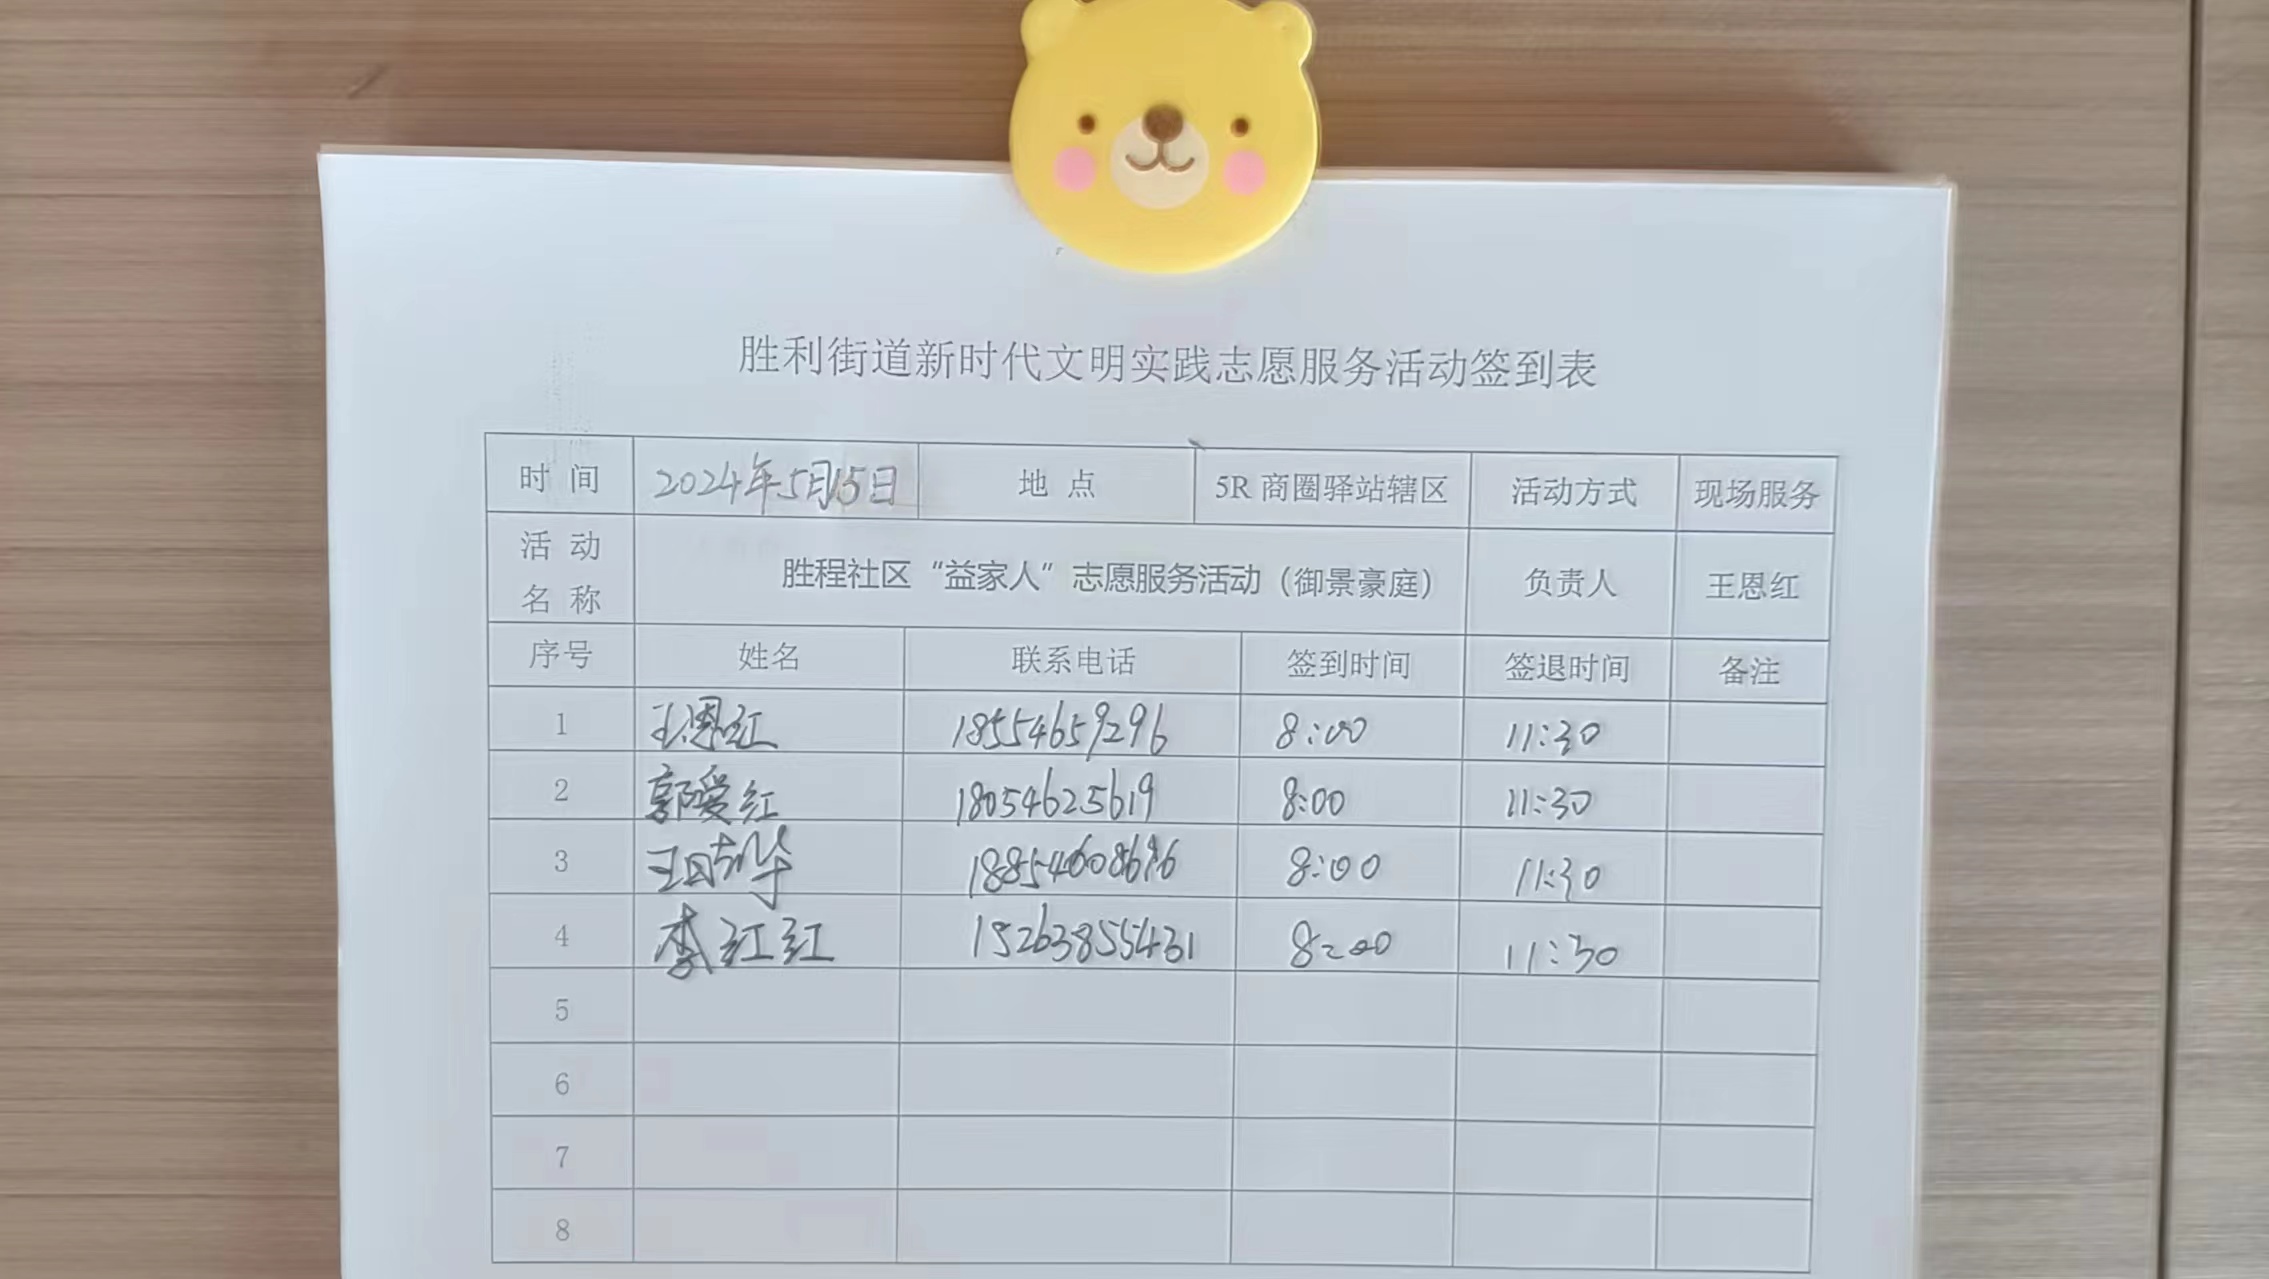 胜利街道新时代文明实践志愿服务活动签到表
时 间 2024年5月15日 地 点 5R 商圈驿站辖区 活动方式 现场服务
活 动
名 称 胜程社区“益家人”志愿服务活动（御景豪庭） 负责人 王恩红
序号 姓名 联系电话 签到时间 签退时间 备注
1 王恩红 18554659296 8:00 11:30
2 郭爱红 18054625619 8:00 11:30
3 8:00 11:30
4 李红红 15263855431 8:00 11:30
5
6
7
8